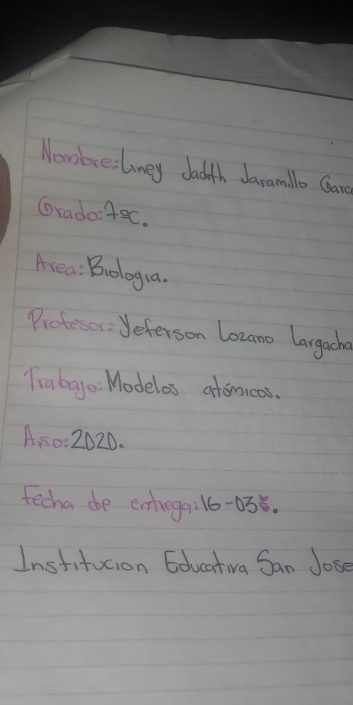 Nombre: Liney Jadith Jaramillo Garc
Grado: 7ºc.
Area: Biologia.
Profesor: Yeferson Lozano Largacha
Trabajo: Modelos atómicos.
Año: 2020.
Fecha de entrega: 16-03
Institucion Educativa San Jose